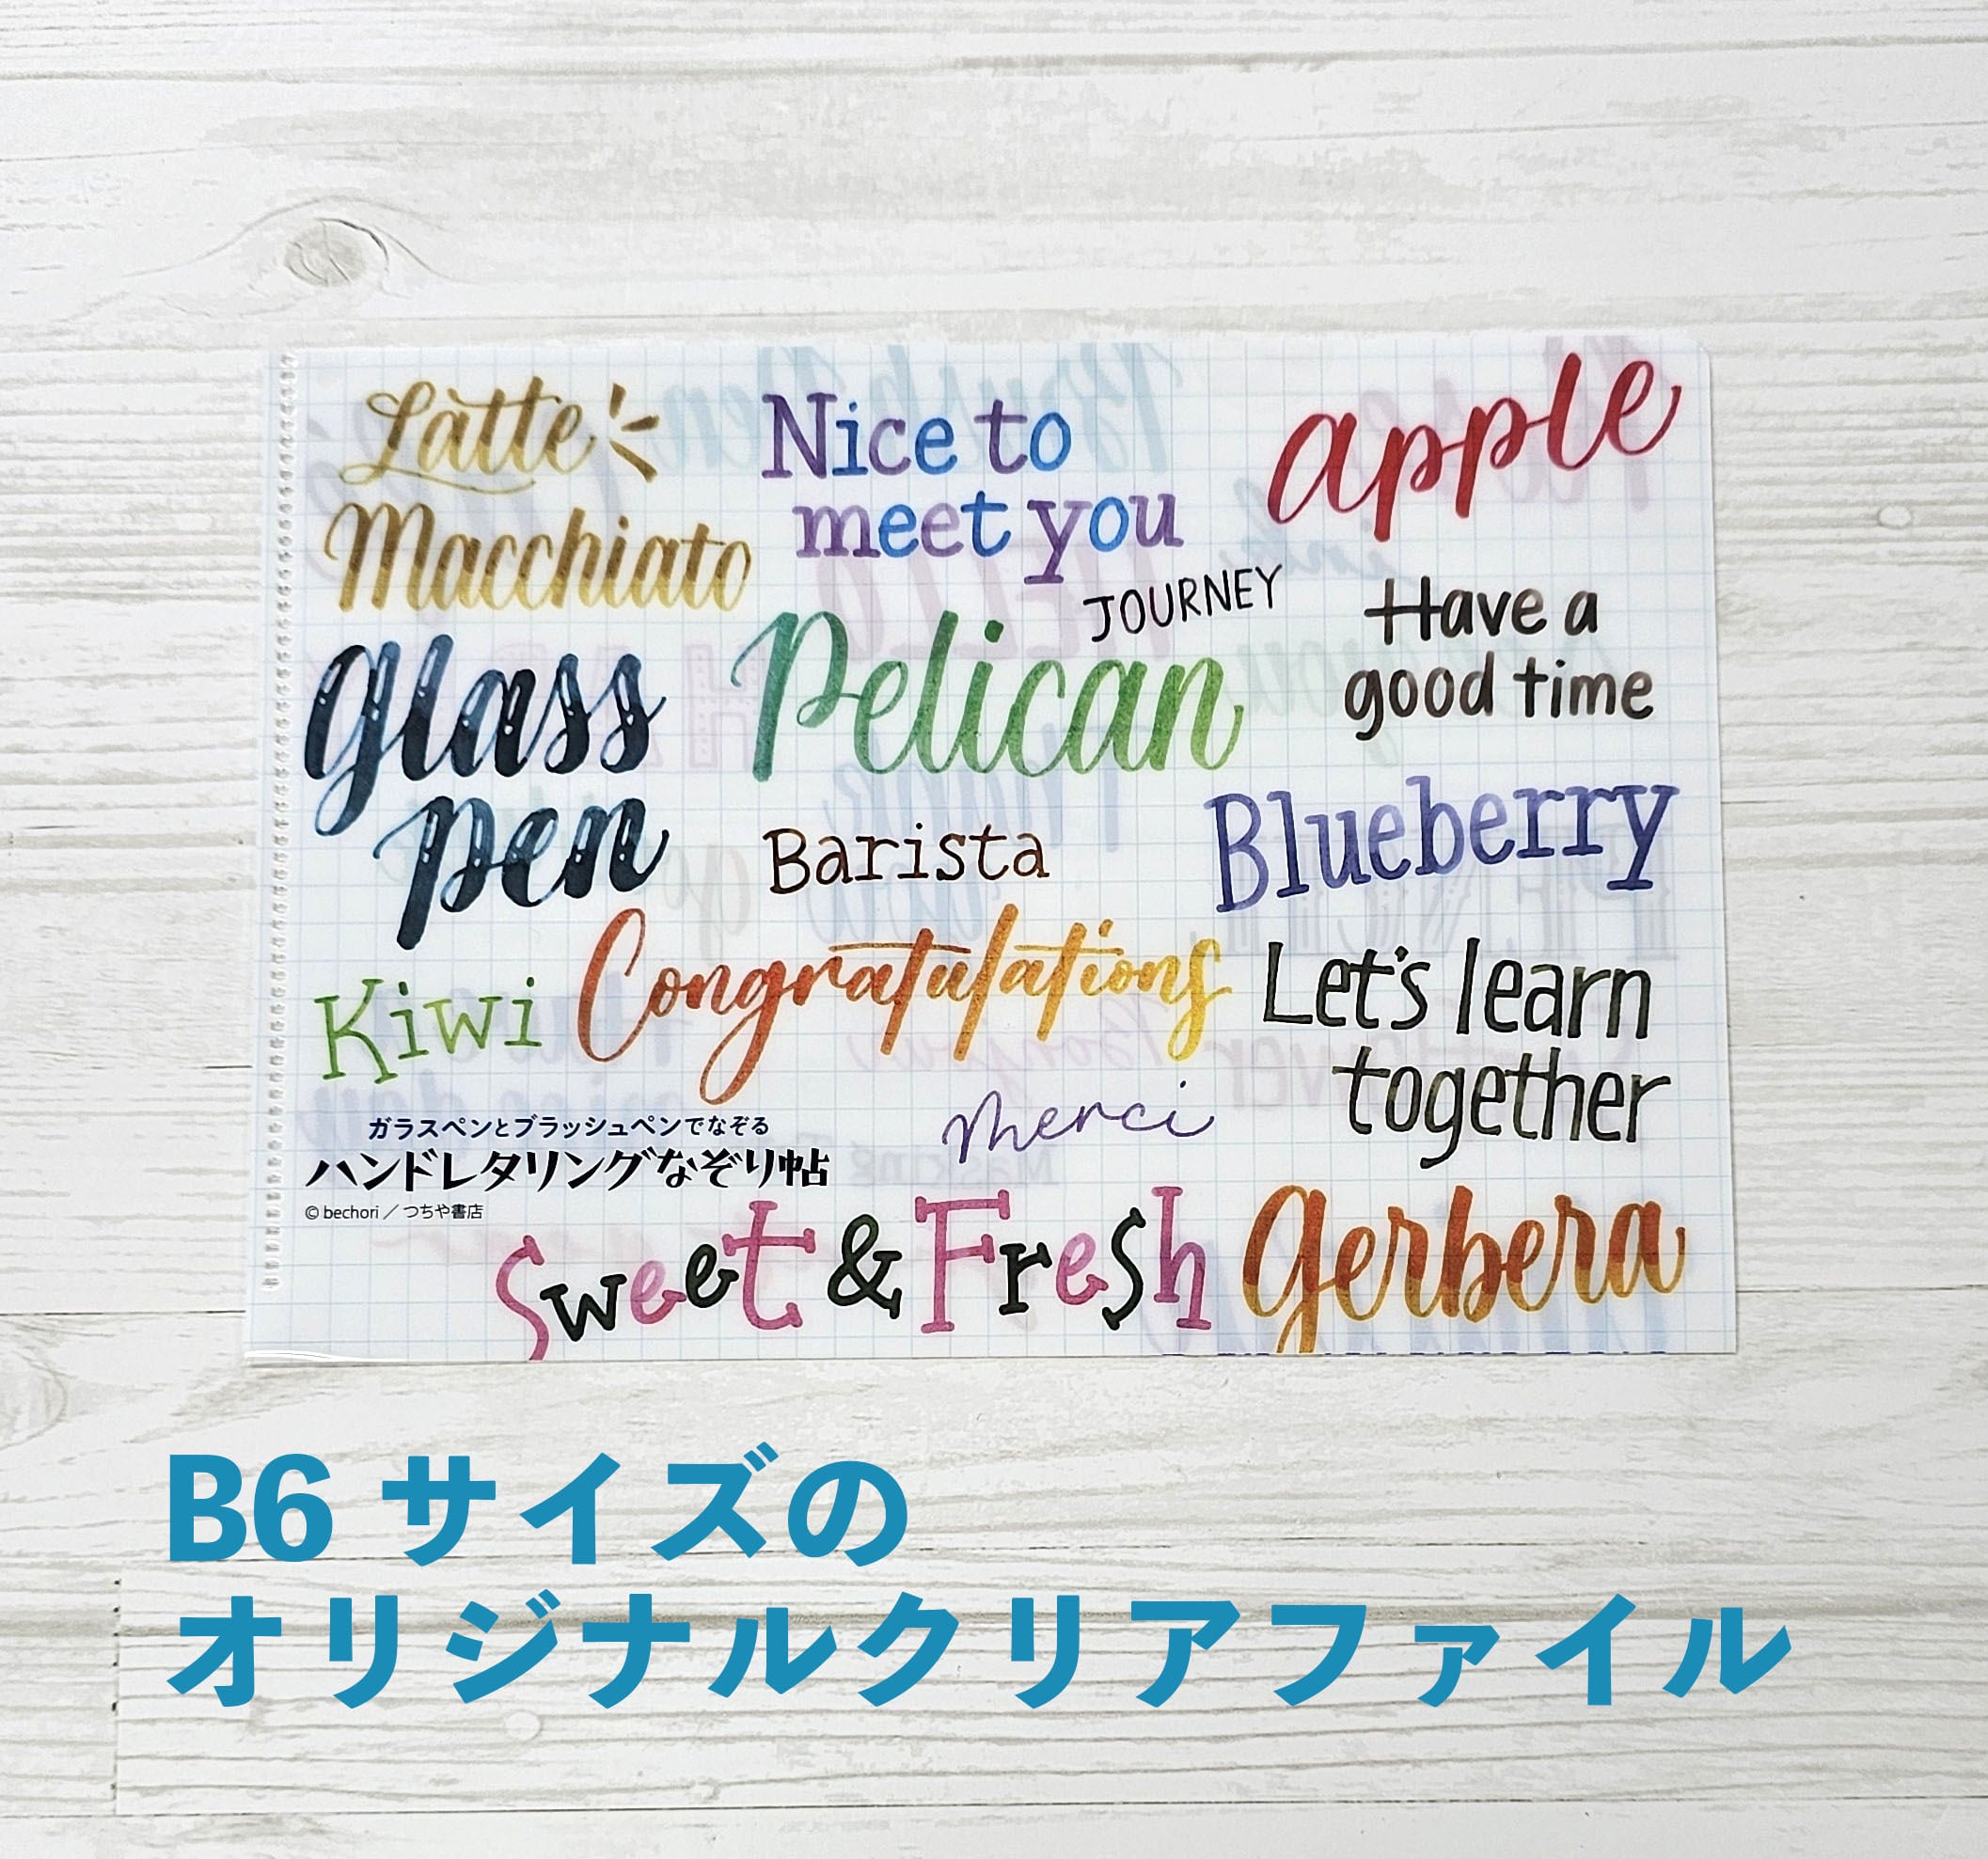 Latte
Macchiato
Nice to
meet you
apple
JOURNEY
Have a
good time
glass
pen
Pelican
Barista
Blueberry
Kiwi
Congratulations
Let's learn
together
merci
ガラスペンとブラッシュペンでなぞる
ハンドレタリングなぞり帖
© bechori / つちや書店
Sweet & Fresh
Gerbera
B6 サイズの
オリジナルクリアファイル